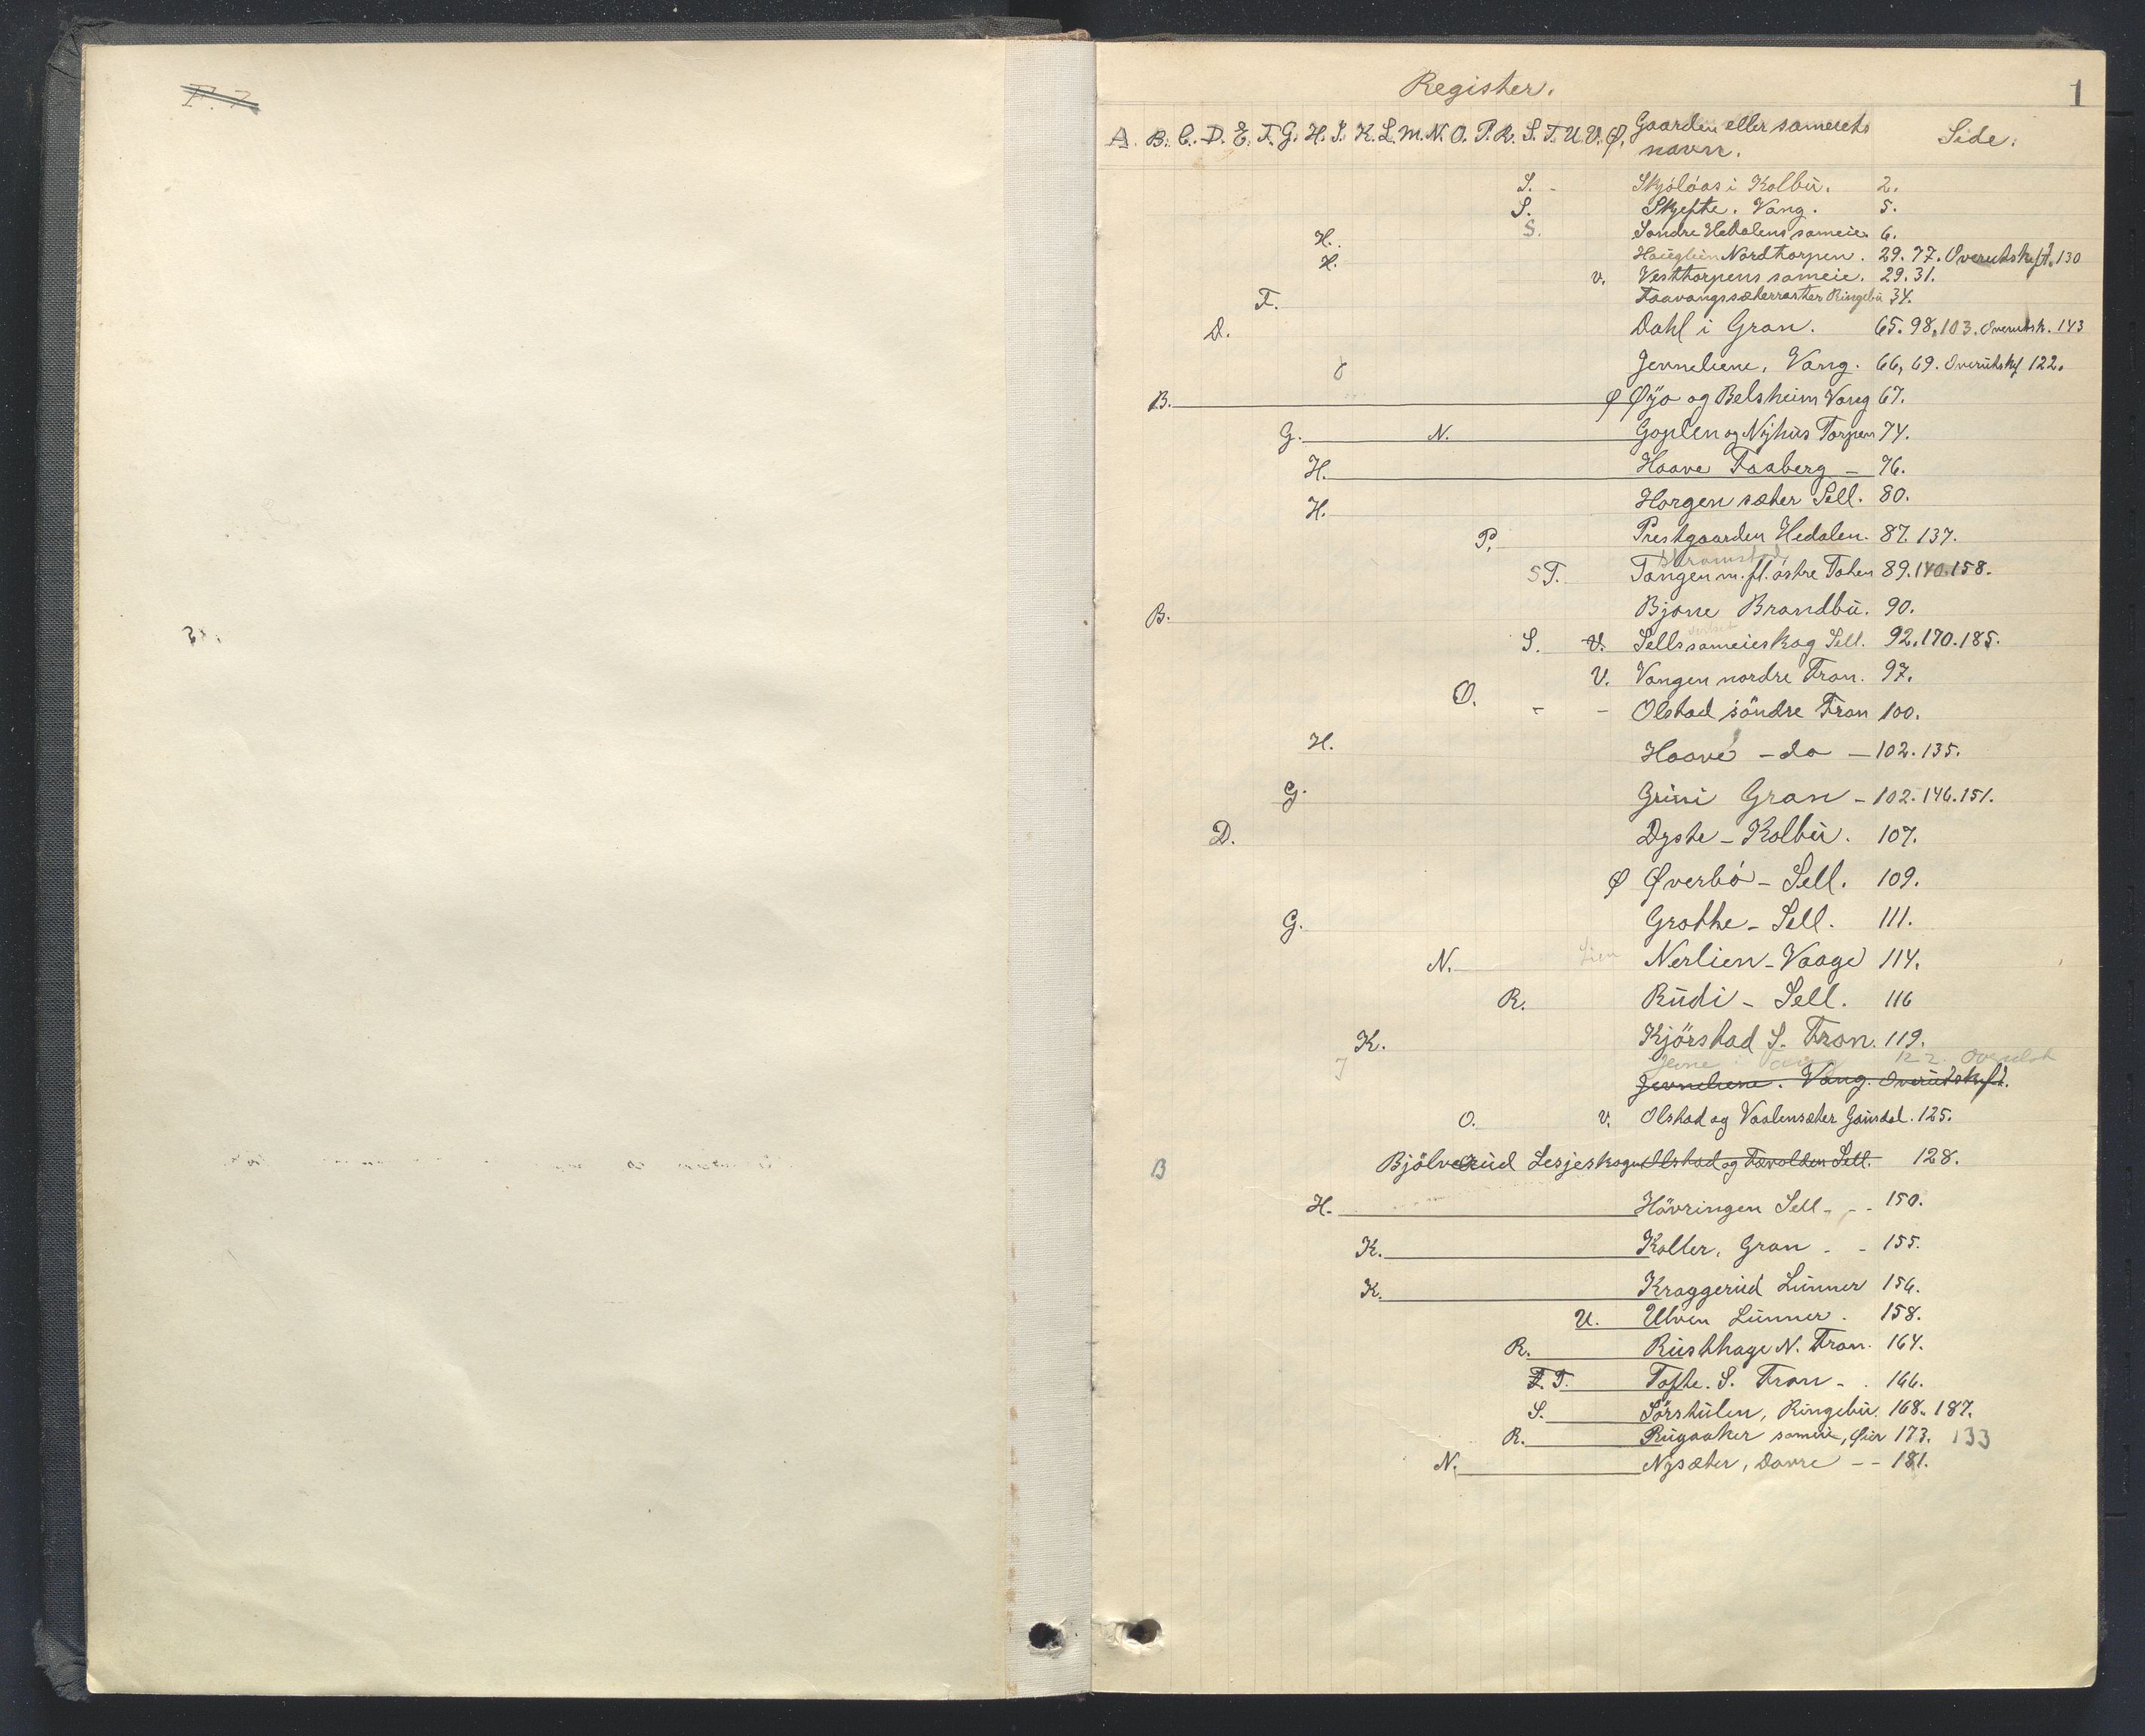 F. 7.
Register.
1
A. B. C. D. E. F. G. H. I. K. L. M. N. O. P. R. S. T. U. V. Ø. Gaarden eller sameiets Side.
navn.
S. - Skjölaas i Kolbu. 2.
S. Skjefte. Vang. 5.
H. S. Söndre Hedalens sameie 6.
H. Hauglein Nordtorpen. 29. 77. Overutskift. 130
V. Vesttorpens sameie. 29. 31.
F. Faavangssæterrasten Ringebu 34.
D. Dahl i Gran. 65. 98, 103. Overutsk. 143
Jevneliene, Vang. 66, 69. Overutskf 122.
B. Ø Øÿo og Belsheim Vang 67.
G. N. Goplen og Nÿhus Torpen 74.
H. Haave Faaberg - 76.
H. Horgen sæter Sell. 80.
P. Prestgaarden Hedalen. 87. 137.
Stramstad
S T. Tangen m. fl. östre Toten 89. 140. 158.
B. Bjone Brandbu. 90.
S. V. Sells sameieskog Sell. 92. 170. 185.
V. Vangen nordre Fron. 97.
O. - - Olstad söndre Fron 100.
H. Haave - do - 102. 135.
G. Grini Gran - 102. 146. 151.
D. Dyste - Kolbu. 107.
Ø Øverbö - Sell. 109.
G. Grothe - Sell. 111.
N. Lien Nerlien - Vaage 114.
R. Rudi - Sell. 116
K. Kjörstad S. Fron. 119.
J Jevne i Vang 122. Overutsk
Jevneliene. Vang. Overutskift.
O. V. Olstad og Vaalensæter Gausdal. 125.
B Bjölverud Lesjeskogen Olstad og Sell. 128.
H. Hövringen Sell - - - 150.
K. Koller, Gran - - 155.
K. Kraggerud Lunner 156.
U. Ulven Lunner. 158.
R. Rusthage N. Fron. 164.
F. T. Tofte. S. Fron - . 166.
S. Sörstulen, Ringebu. 168. 187.
R. Rugaaker sameie, Øier 173. 133
N. Nysæter, Dovre - - 181.